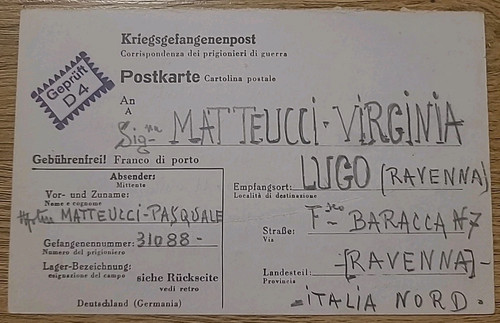 Kriegsgefangenenpost
Corrispondenza dei prigionieri di guerra
Geprüft
D 4
Postkarte Cartolina postale
An
A
Sig.na MATTEUCCI - VIRGINIA
Gebührenfrei! Franco di porto
LUGO (RAVENNA)
Empfangsort:
Località di destinazione
Absender:
Mittente
Vor- und Zuname:
Nome e cognome
MATTEUCCI - PASQUALE
Gefangenennummer: 31088 -
Numero del prigioniero
Lager-Bezeichnung:
esignazione del campo
siehe Rückseite
vedi retro
Deutschland (Germania)
Straße: F.sco BARACCA N 7
Via
Landesteil: - [RAVENNA] -
Provincia
- ITALIA NORD -